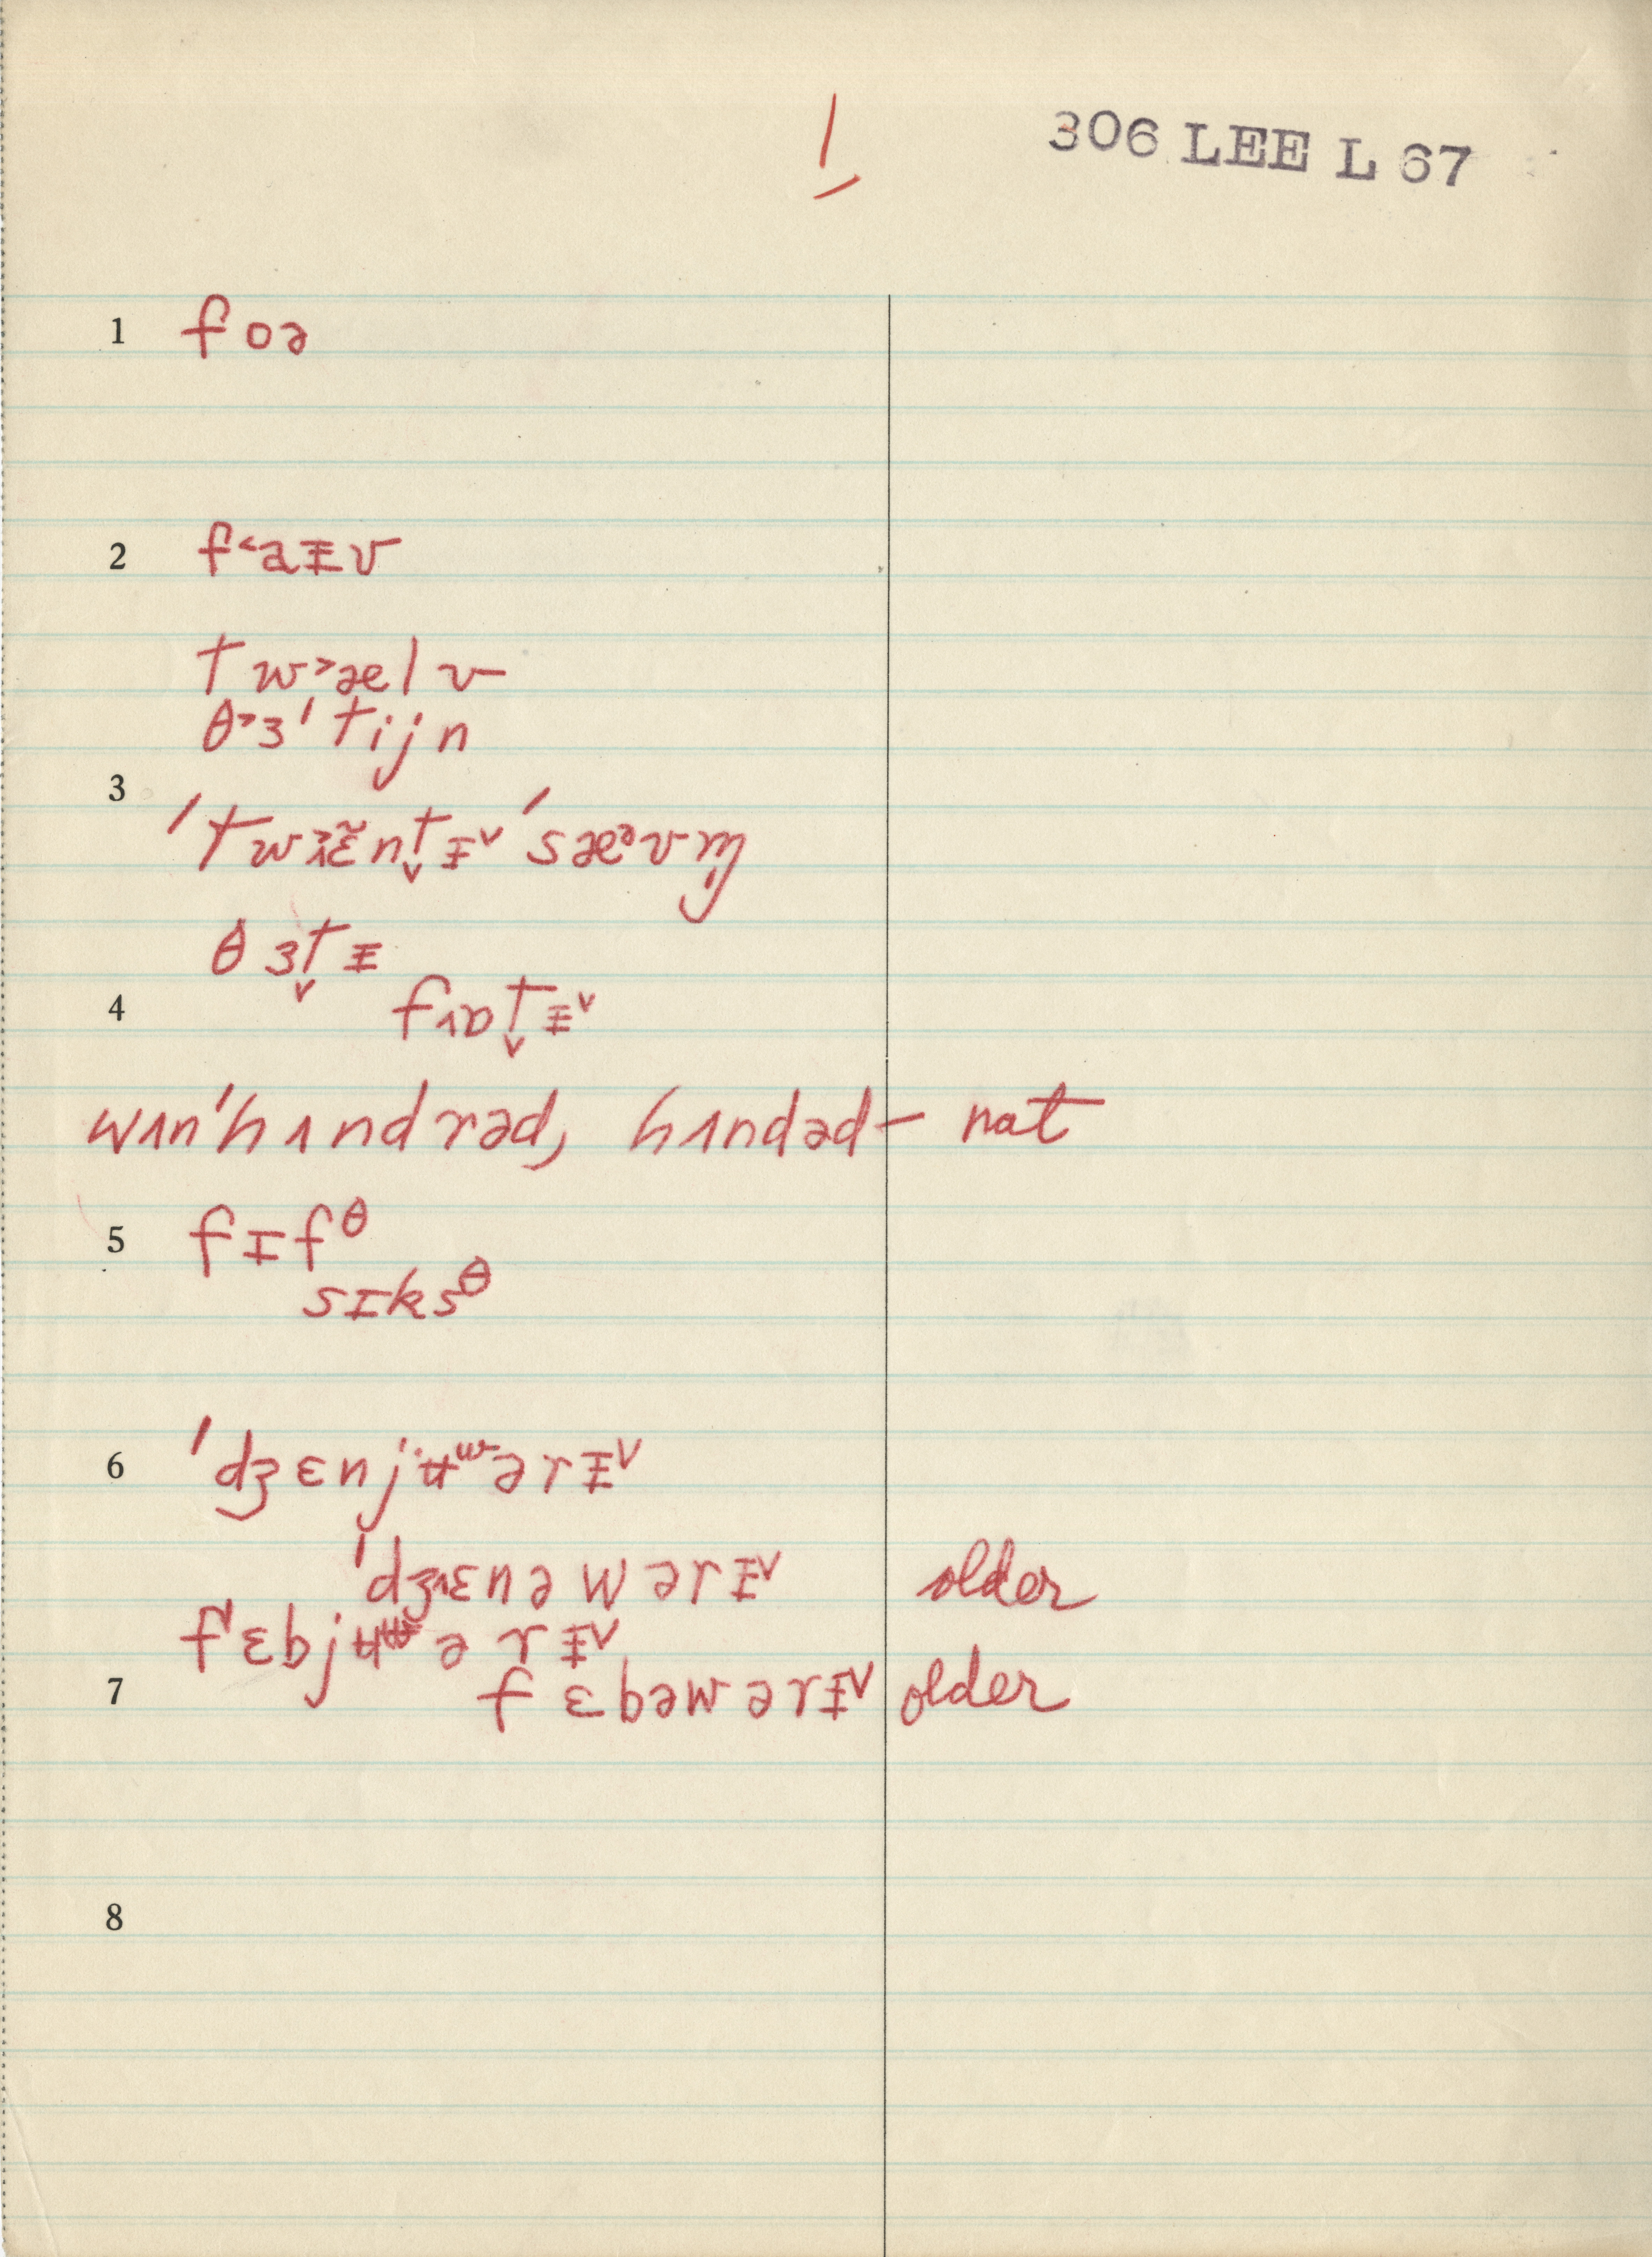 1
306 LEE L 67
1 foə
2 f˂aᵻv
tw˃ælv
θ˃ɜˈtijn
3
ˈtw˃ɪɛ̃nt̬ᵻ˅ ˈsæᵊvm̩
θɜt̬ᵻ
4 fɒt̬ᵻ˅
wʌnˈhʌndrəd, hʌndəd– nat
5 fɪf^θ
sɪks^θ
6 ˈdʒɛnjʉʷərᵻ˅
ˈdʒɛnəwərᵻ˅ older
fˈɛbjʉʷərᵻ˅
7 fɛbəwərᵻ˅ older
8